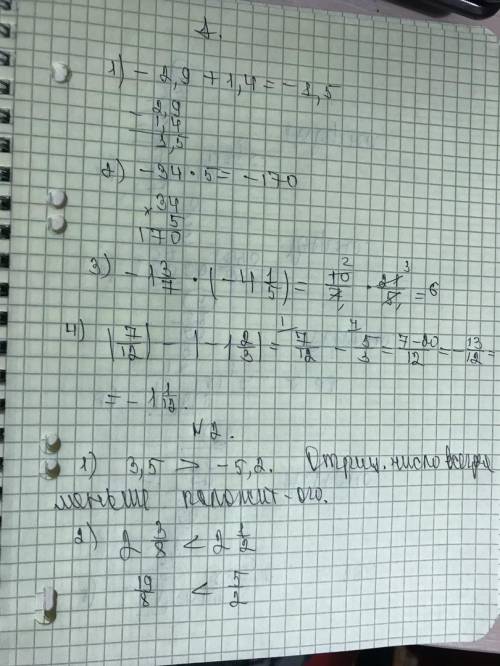 1.
1) - 2,9 + 1,4 = - 1,5
- 2,9
1,4
1,5
2) - 34 · 5 = - 170
× 34
5
170
3) - 1 3/7 · (- 4 1/5) = 10²/7₁ · 21³/5₁ = 6
4) |7/12| - |- 1 2/3| = ¹⁄ 7/12 - ⁴⁄ 5/3 = 7-20/12 = - 13/12 =
= - 1 1/12.
N 2.
1) 3,5 > - 5,2. Отриц. число всегда
меньше положит-ого.
2) 2 3/8 < 2 1/2
19/8 < 5/2